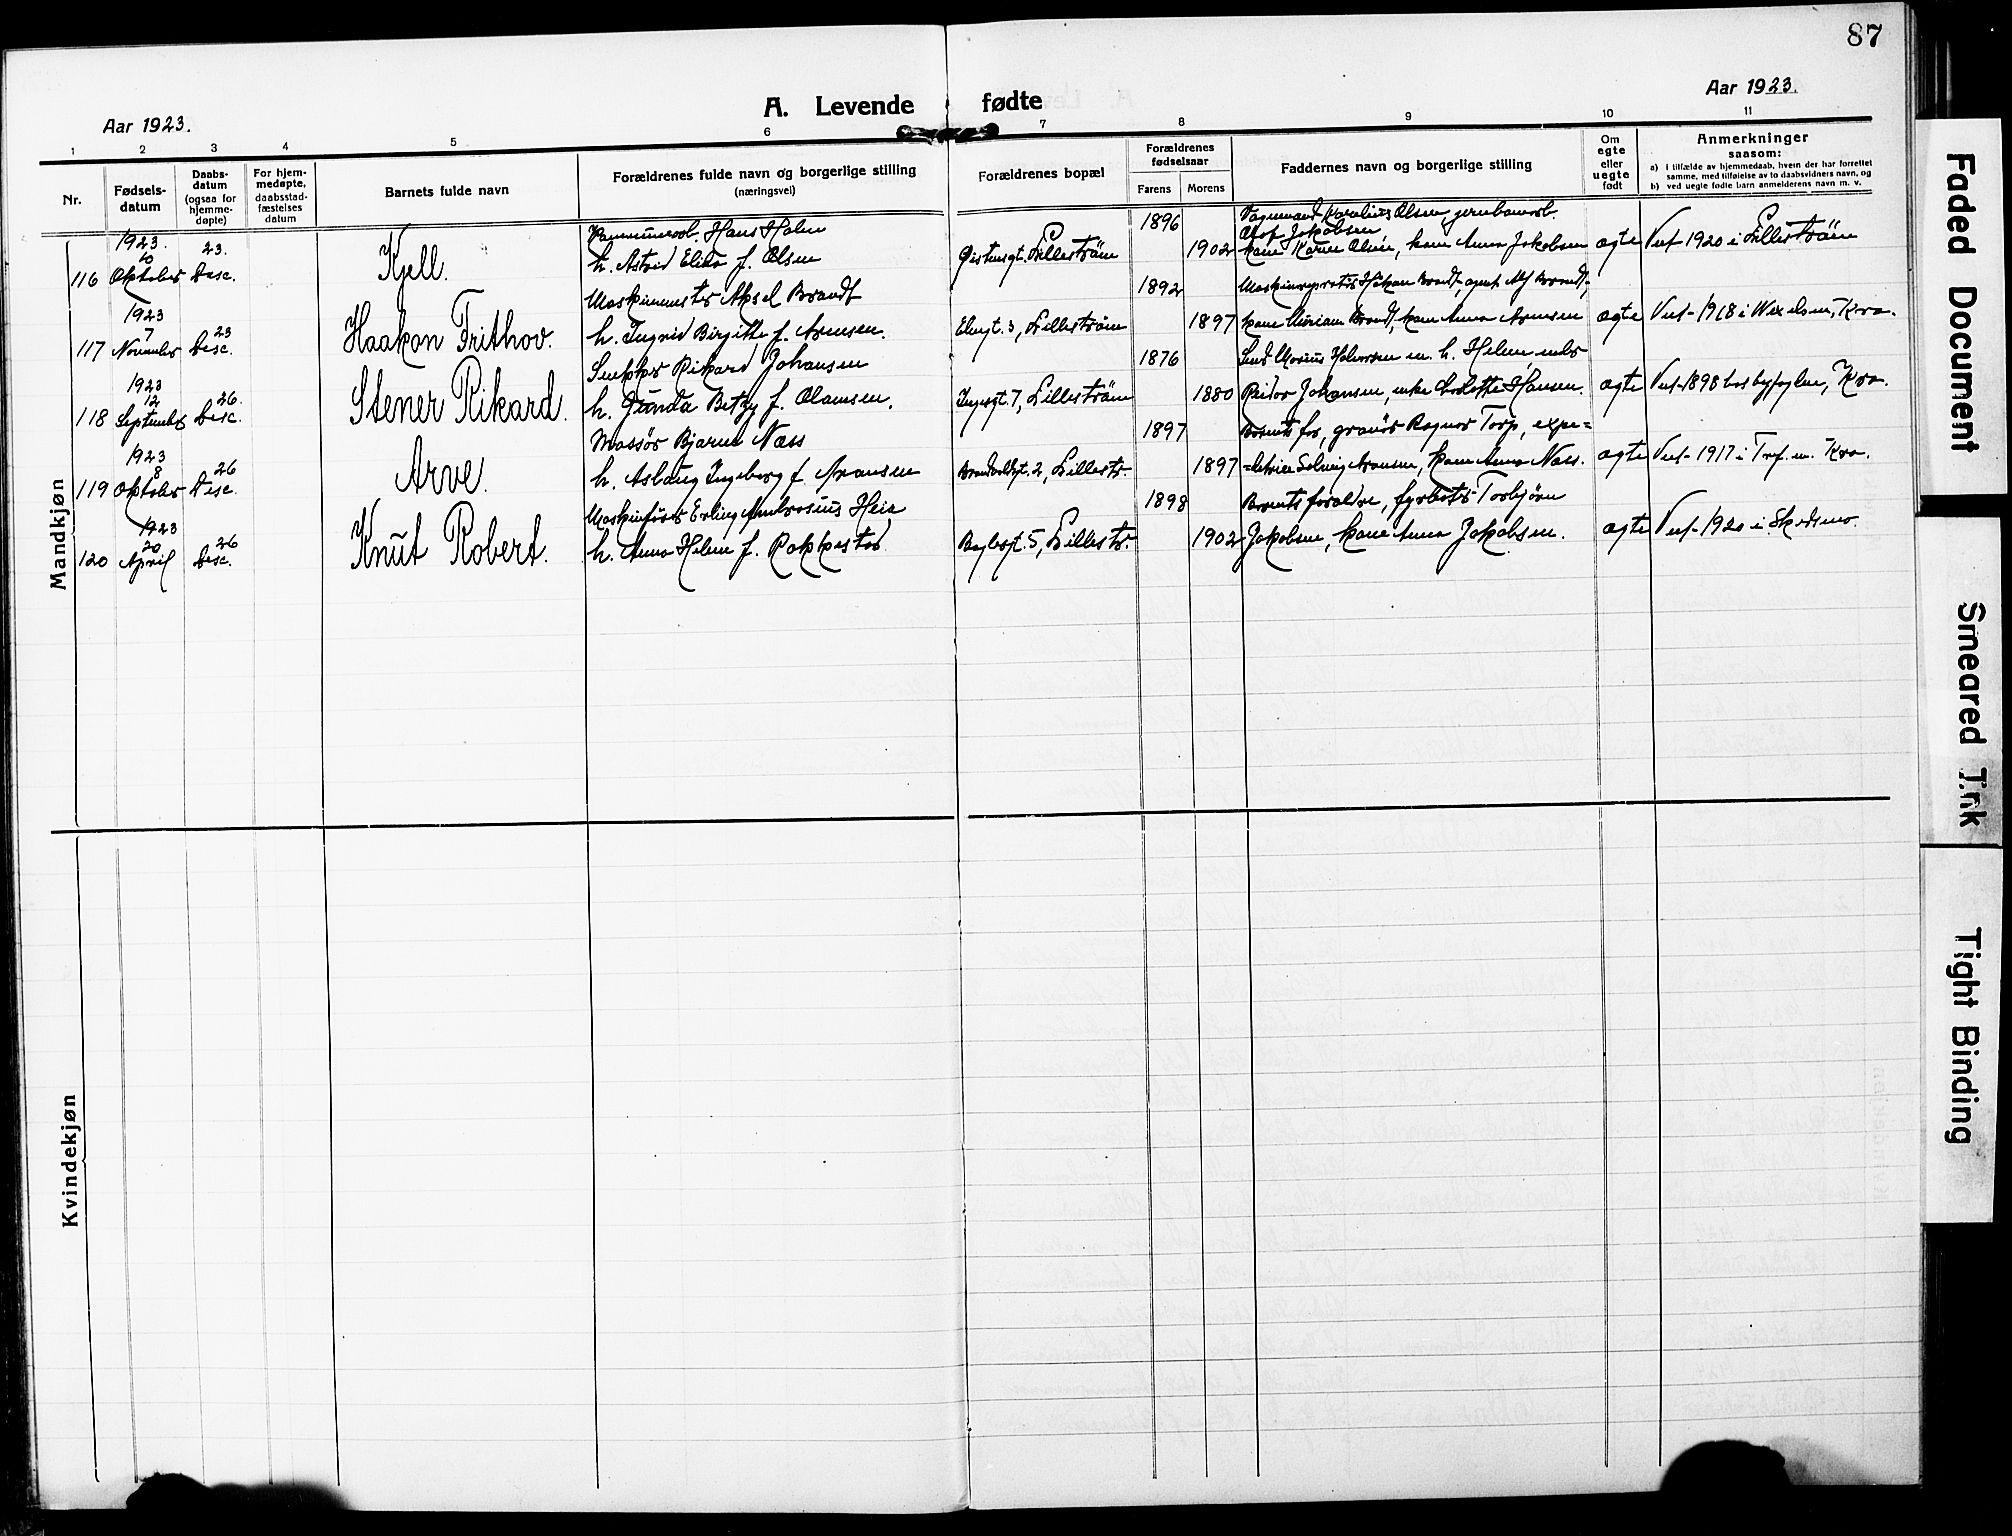 87
Aar 1923.
A. Levende fødte
Aar 1923.
1 2 3 4 5 6 7 8 9 10 11
Nr.
Fødsels-
datum
Daabs-
datum
(ogsaa for
hjemme-
døpte)
For hjem-
medøpte,
daabsstad-
fæstelses
datum
Barnets fulde navn
Forældrenes fulde navn og borgerlige stilling
(næringsvei)
Forældrenes bopæl
Forældrenes
fødselsaar
Farens Morens
Faddernes navn og borgerlige stilling
Om
egte
eller
uegte
født
Anmerkninger
saasom:
a) i tilfælde av hjemmedaab, hvem der har forrettet
samme, med tilføielse av to daabsvidners navn, og
b) ved uegte fødte barn anmelderens navn m. v.
Mandkjøn
116
1923.
10
Oktober
23.
Desc.
Kjell.
Hans Holm
h. Astrid Elida f. Olsen
Lillestrøm
1896
1902
Olsen, jernbanearb.
Olof Jakobsen
kone Karen Olsen, kone Anna Jakobsen
egte
Viet 1920 i Lillestrøm
117
1923
7
November
23
Desc.
Haakon Frithov.
Maskinmester Aksel Brandt
h. Ingrid Birgitte f. Arnesen.
Elvegt. 3, Lillestrøm
1892
1897
Maskinreparatør Håkon Brandt, agent Alf Brandt,
kone Miriam Brandt, kone Anna Arnesen
egte
Viet 1918 i Wexelsen, Kra.
118
1923
12
September
26.
Desc.
Stener Rikard.
Snekker Rikard Johansen
h. Gunda Betzy f. Olamsen.
7, Lillestrøm
1876
1880
Halvorsen m. h. Helene
Reidar Johansen, enke Hansen.
egte
Viet 1898 hos byfogden, Kra.
119
1923
8
Oktober
26
Desc.
Arve.
Massør Bjarne Næss
h. Aslaug Ingeborg f. Aronsen
2, Lillestr.
1897
1897
Barnets far, gravør Ragnar Torp, expe=
=ditrise Solveig Aronsen, kone Anna Næss.
egte
Viet 1917 i Tref. m. Kra.
120
1923
20
April
26
Desc.
Knut Robert.
Maskinfører Erling Ambrosius Heia
h. Anna Helene f. Rokkestad
5, Lillestr.
1898
1902
Barnets forældre, fyrbøter Torbjørn
Jakobsen, kone Anna Jakobsen.
egte
Viet 1920 i Skedsmo.
Kvindekjøn
Faded Document
Smeared Ink
Tight Binding